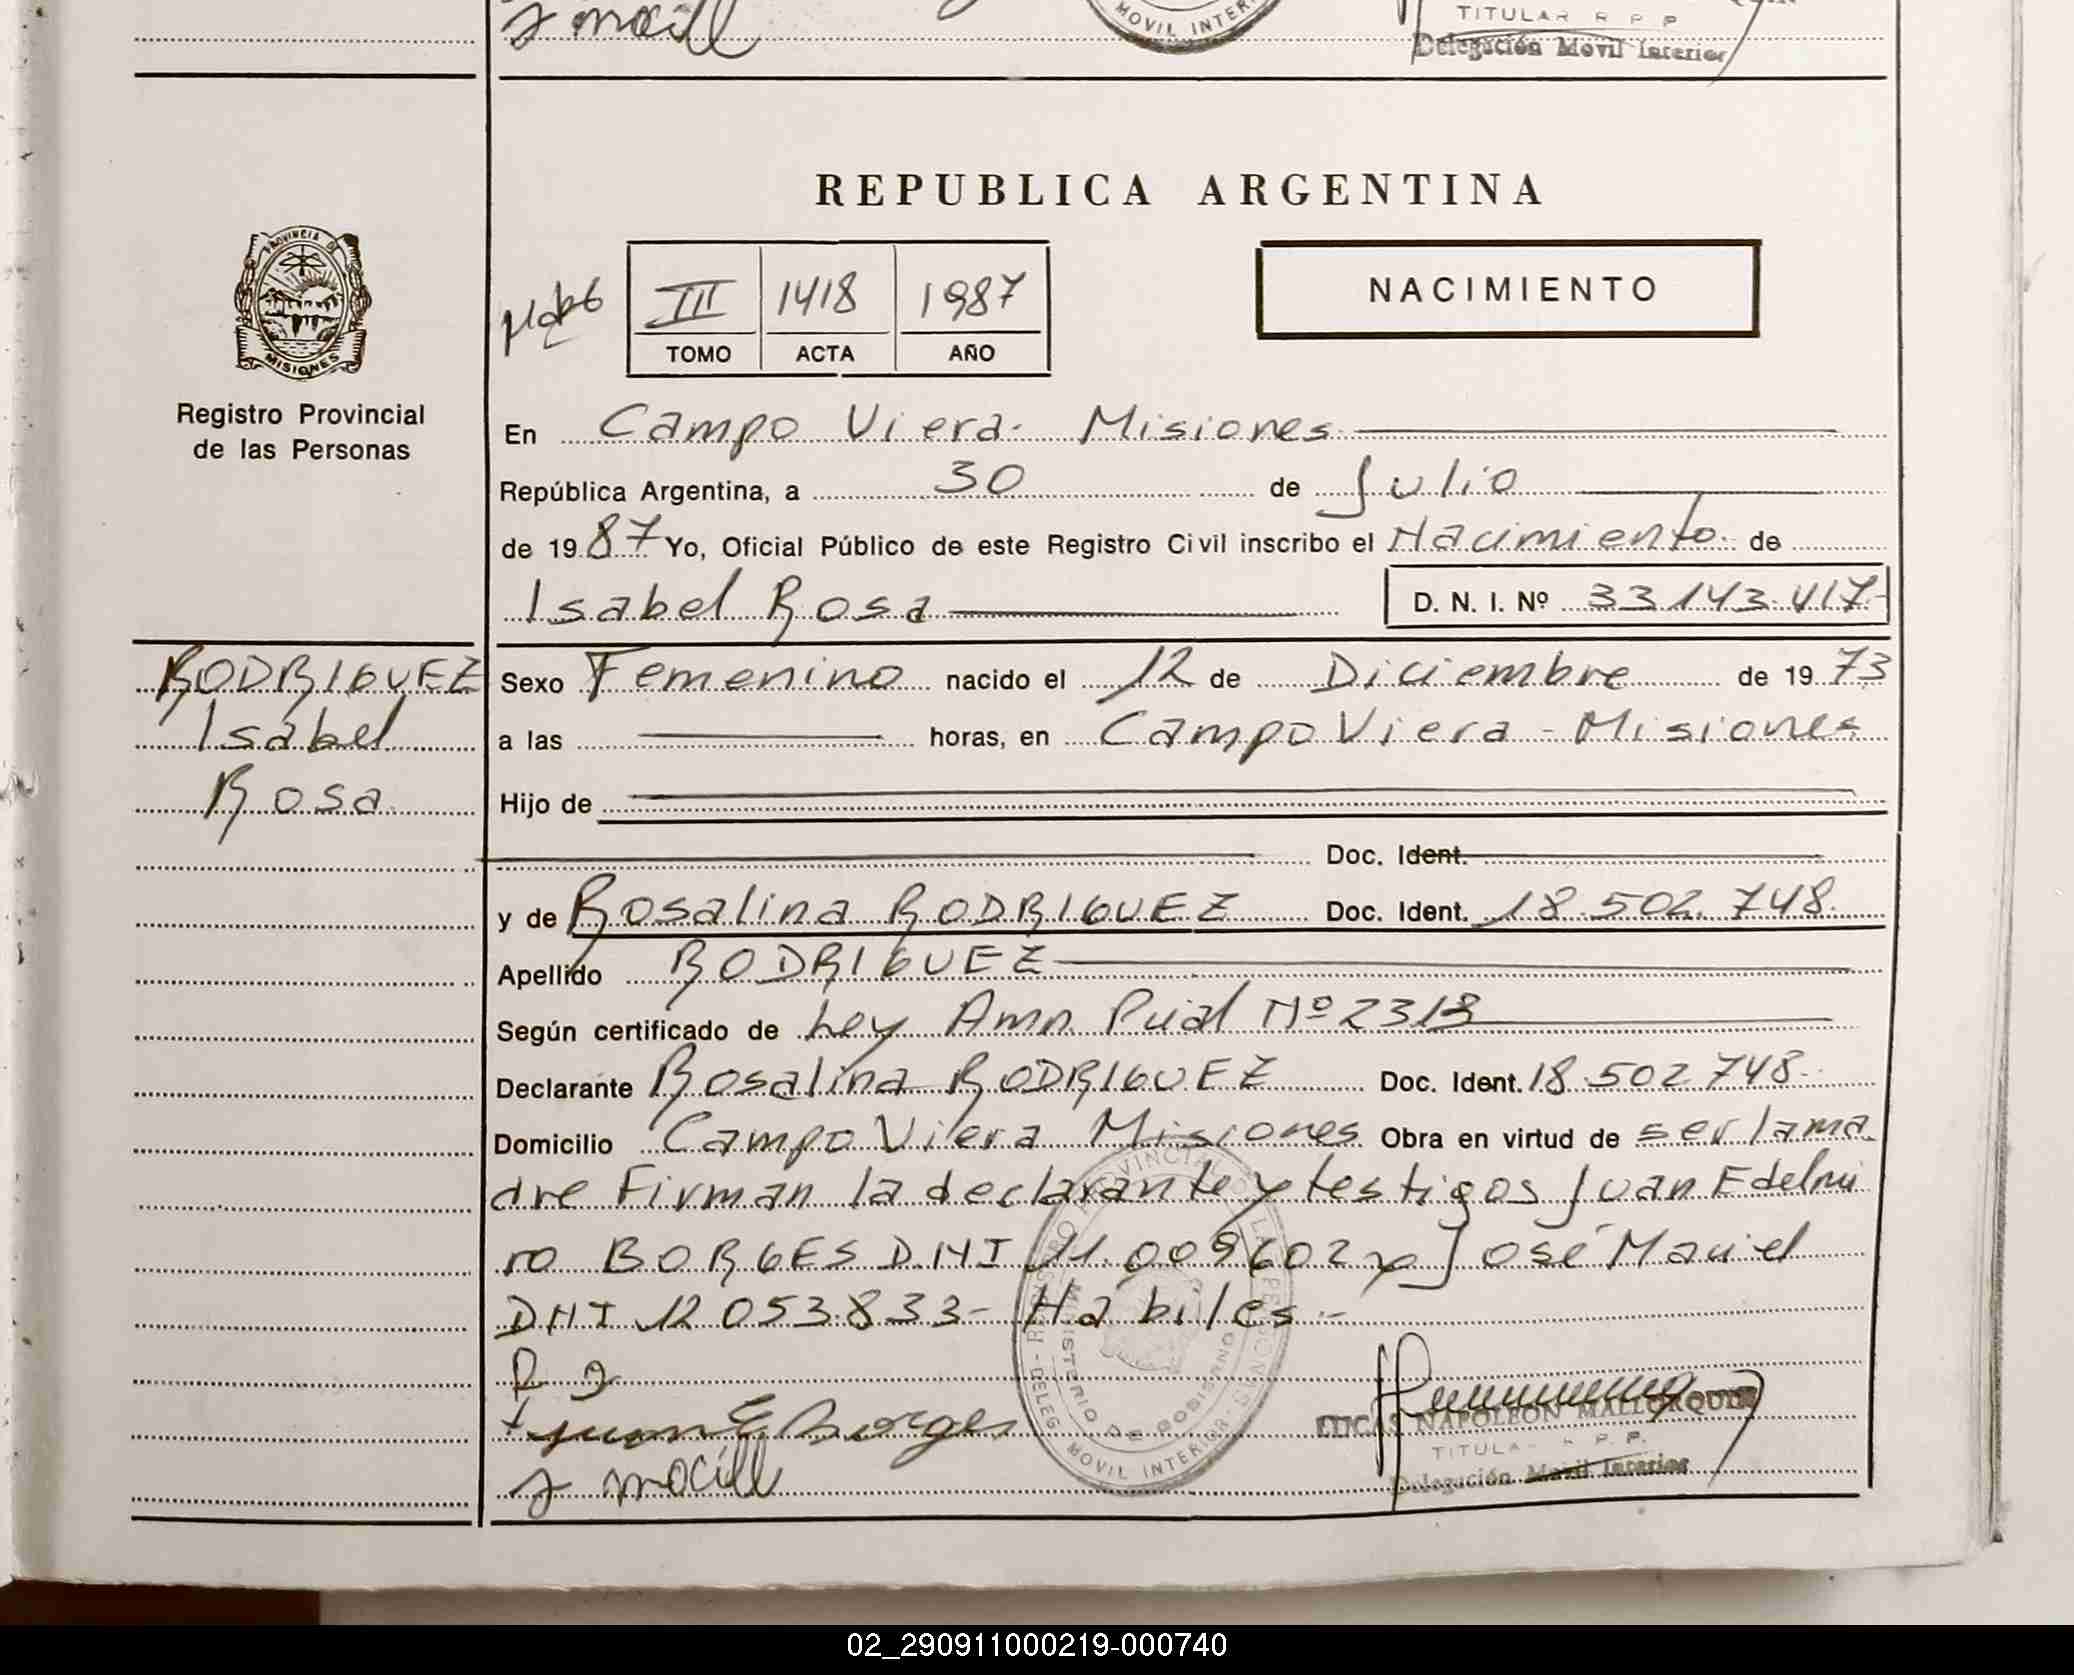 MOVIL INTERIOR
TITULAR R P P
Delegación Movil Interior
REPUBLICA ARGENTINA
PROVINCIA DE
MISIONES
Registro Provincial
de las Personas
III 1418 1987
TOMO ACTA AÑO
NACIMIENTO
En Campo Viera - Misiones
República Argentina, a 30 de Julio
de 1987 Yo, Oficial Público de este Registro Civil inscribo el Nacimiento de
Isabel Rosa D. N. I. Nº 33.143.417-
RODRIGUEZ
Isabel
Rosa
Sexo Femenino nacido el 12 de Diciembre de 1973
a las horas, en Campo Viera - Misiones
Hijo de
Doc. Ident.
y de Rosalina RODRIGUEZ Doc. Ident. 18.502.748.
Apellido RODRIGUEZ
Según certificado de Ley Amn Pcial Nº 2313
Declarante Rosalina RODRIGUEZ Doc. Ident. 18.502748-
Domicilio Campo Viera Misiones Obra en virtud de ser la ma
dre Firman la declarante y testigos Juan Edelmi
ro BORGES D.N.I 11.009602 y José Maciel
DNI 12 053.833- Hábiles.-
R
Juan E Borges
REGISTRO PROVINCIAL DE LAS PERSONAS - DELEG MOVIL INTERIOR -
MINISTERIO DE GOBIERNO
LUCAS NAPOLEON MALLORQUIN
TITULAR R. P. P.
Delegación Movil Interior
02_290911000219-000740